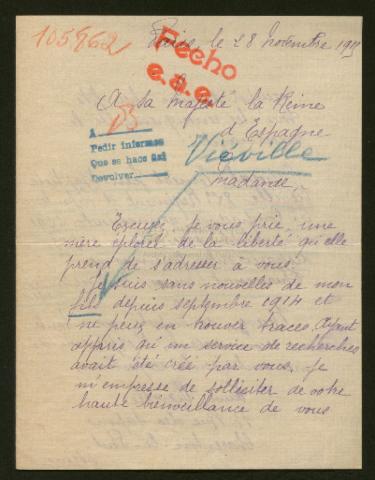 105862
Paris, le 28 novembre 191
Fecho
c.a.c.
A sa majesté la Reine
d'Espagne
A
Pedir informes
Que se hace
Devolver
Viéville
Madame,
Excusez je vous prie une
mère éplorée de la liberté qu'elle
prend de s'adresser à vous.
Je suis sans nouvelles de mon
fils depuis septembre 1914 et
ne peux en trouver traces. Ayant
appris qu'un service de recherches
avait été créé par vous, je
m'empresse de solliciter de votre
haute bienveillance de vous